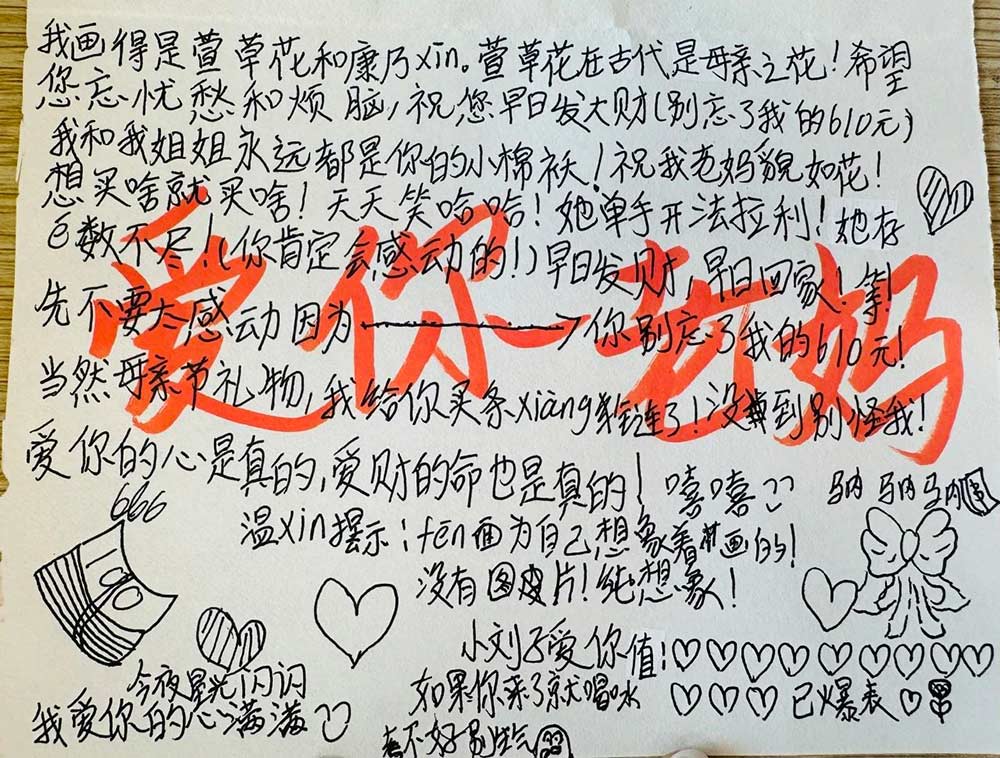 我画得是萱草花和康乃xīn。萱草花在古代是母亲之花！希望
您忘忧愁和烦脑，祝您早日发大财（别忘了我的610元）
我和我姐姐永远都是你的小棉袄！祝我老妈貌如花！
想买啥就买啥！天天笑哈哈！她单手开法拉利！她存
已数不尽！（你肯定会感动的！）早日发财，早日回家！等！
先不要太感动因为——→你别忘了我的610元！
当然母亲节礼物，我给你买条xiàng链了！没到别怪我！
爱你的心是真的，爱财的命也是真的！嘻嘻
666
温xīn提示：fēn面为自己想象着画的！
没有图片！纯想象！
小刘子爱你值！
今夜星光闪闪
如果你累了就喝水
已爆表
我爱你的心满满
不好别生气
爱你老妈